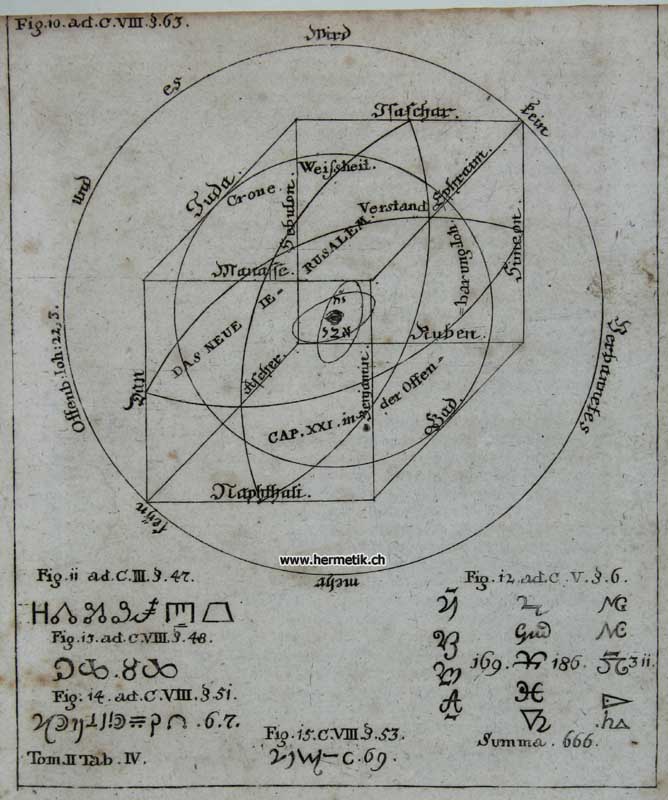 Fig. 10. ad. C. VIII. §. 63.
Und es Wird kein Verbannetes mehr seyn
Offenb: Joh: 22, 3.
Isaschar.
Juda.
Crone.
Weißheit.
Verstand
Ephraim.
Sebulon.
Simeon.
Manasse.
Ruben.
DAS NEUE IE-
RUSALEM.
CAP. XXI. in
der Offen-
=barung Joh.
Dan
Ascher.
Benjamin.
Gad.
Naphthali.
www.hermetik.ch
Fig. 11 ad. C. III. §. 47.
Fig. 12. ad. C. V. §. 6.
Fig. 13. ad. C. VIII. §. 48.
169.
186.
311.
Fig. 14. ad. C. VIII. §. 51.
.6.7.
Fig. 15. C. VIII. §. 53.
C. 69.
Summa. 666.
Tom. II Tab. IV.